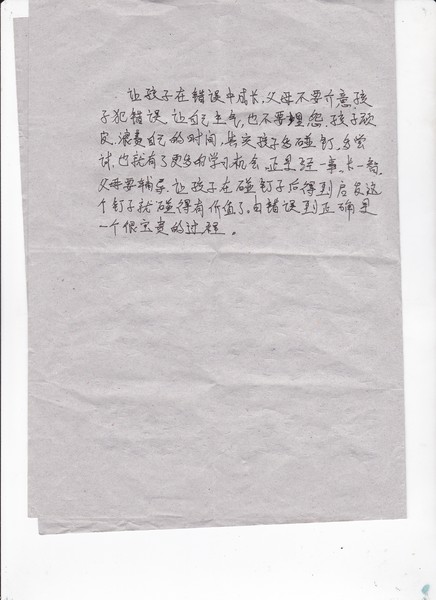 让孩子在错误中成长,父母不要介意孩
子犯错误,让自己生气,也不要埋怨,孩子顽
皮,浪费自己的时间,其实孩子多碰钉,多尝
试,也就有了更多的学习机会。正是经一事,长一智。
父母要辅导,让孩子在碰钉子后得到启发这
个钉子就碰得有价值了,由错误到正确是
一个很宝贵的过程。